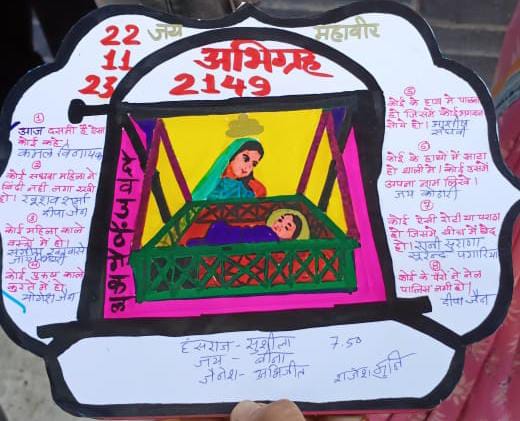 22
जय महावीर
11
अभिग्रह
23
2149
①
आज दसमी है ऐसा
कोई कहे।
कमल विनायक
②
कोई सधवा महिला ने
बिंदी नहीं लगा रखी
हो।
दीपा जैन
③
कोई महिला काले
वस्त्रो में हो।
④
कोई पुरुष काले
कुरते में हो।
योगेश जैन
⑤
कोई के हाथ में पालना
हो जिसमे कोई भगवान
सोये हो।
⑥
कोई के हाथो में आटा
हो थाली में। कोई उसमे
अपना नाम लिखे।
जय कोठारी
⑦
कोई ऐसी रोटी या पराठा
हो जिसमे बीच में छेद
हो।
सुरेन्द्र पगारिया
⑧
कोई के पैरो में नेल
पालिस लगी हो।
दीपा जैन
हंसराज - सुशीला 7.50
जय - वीना
जैनेश - अभिजीत
राजेश मुनि